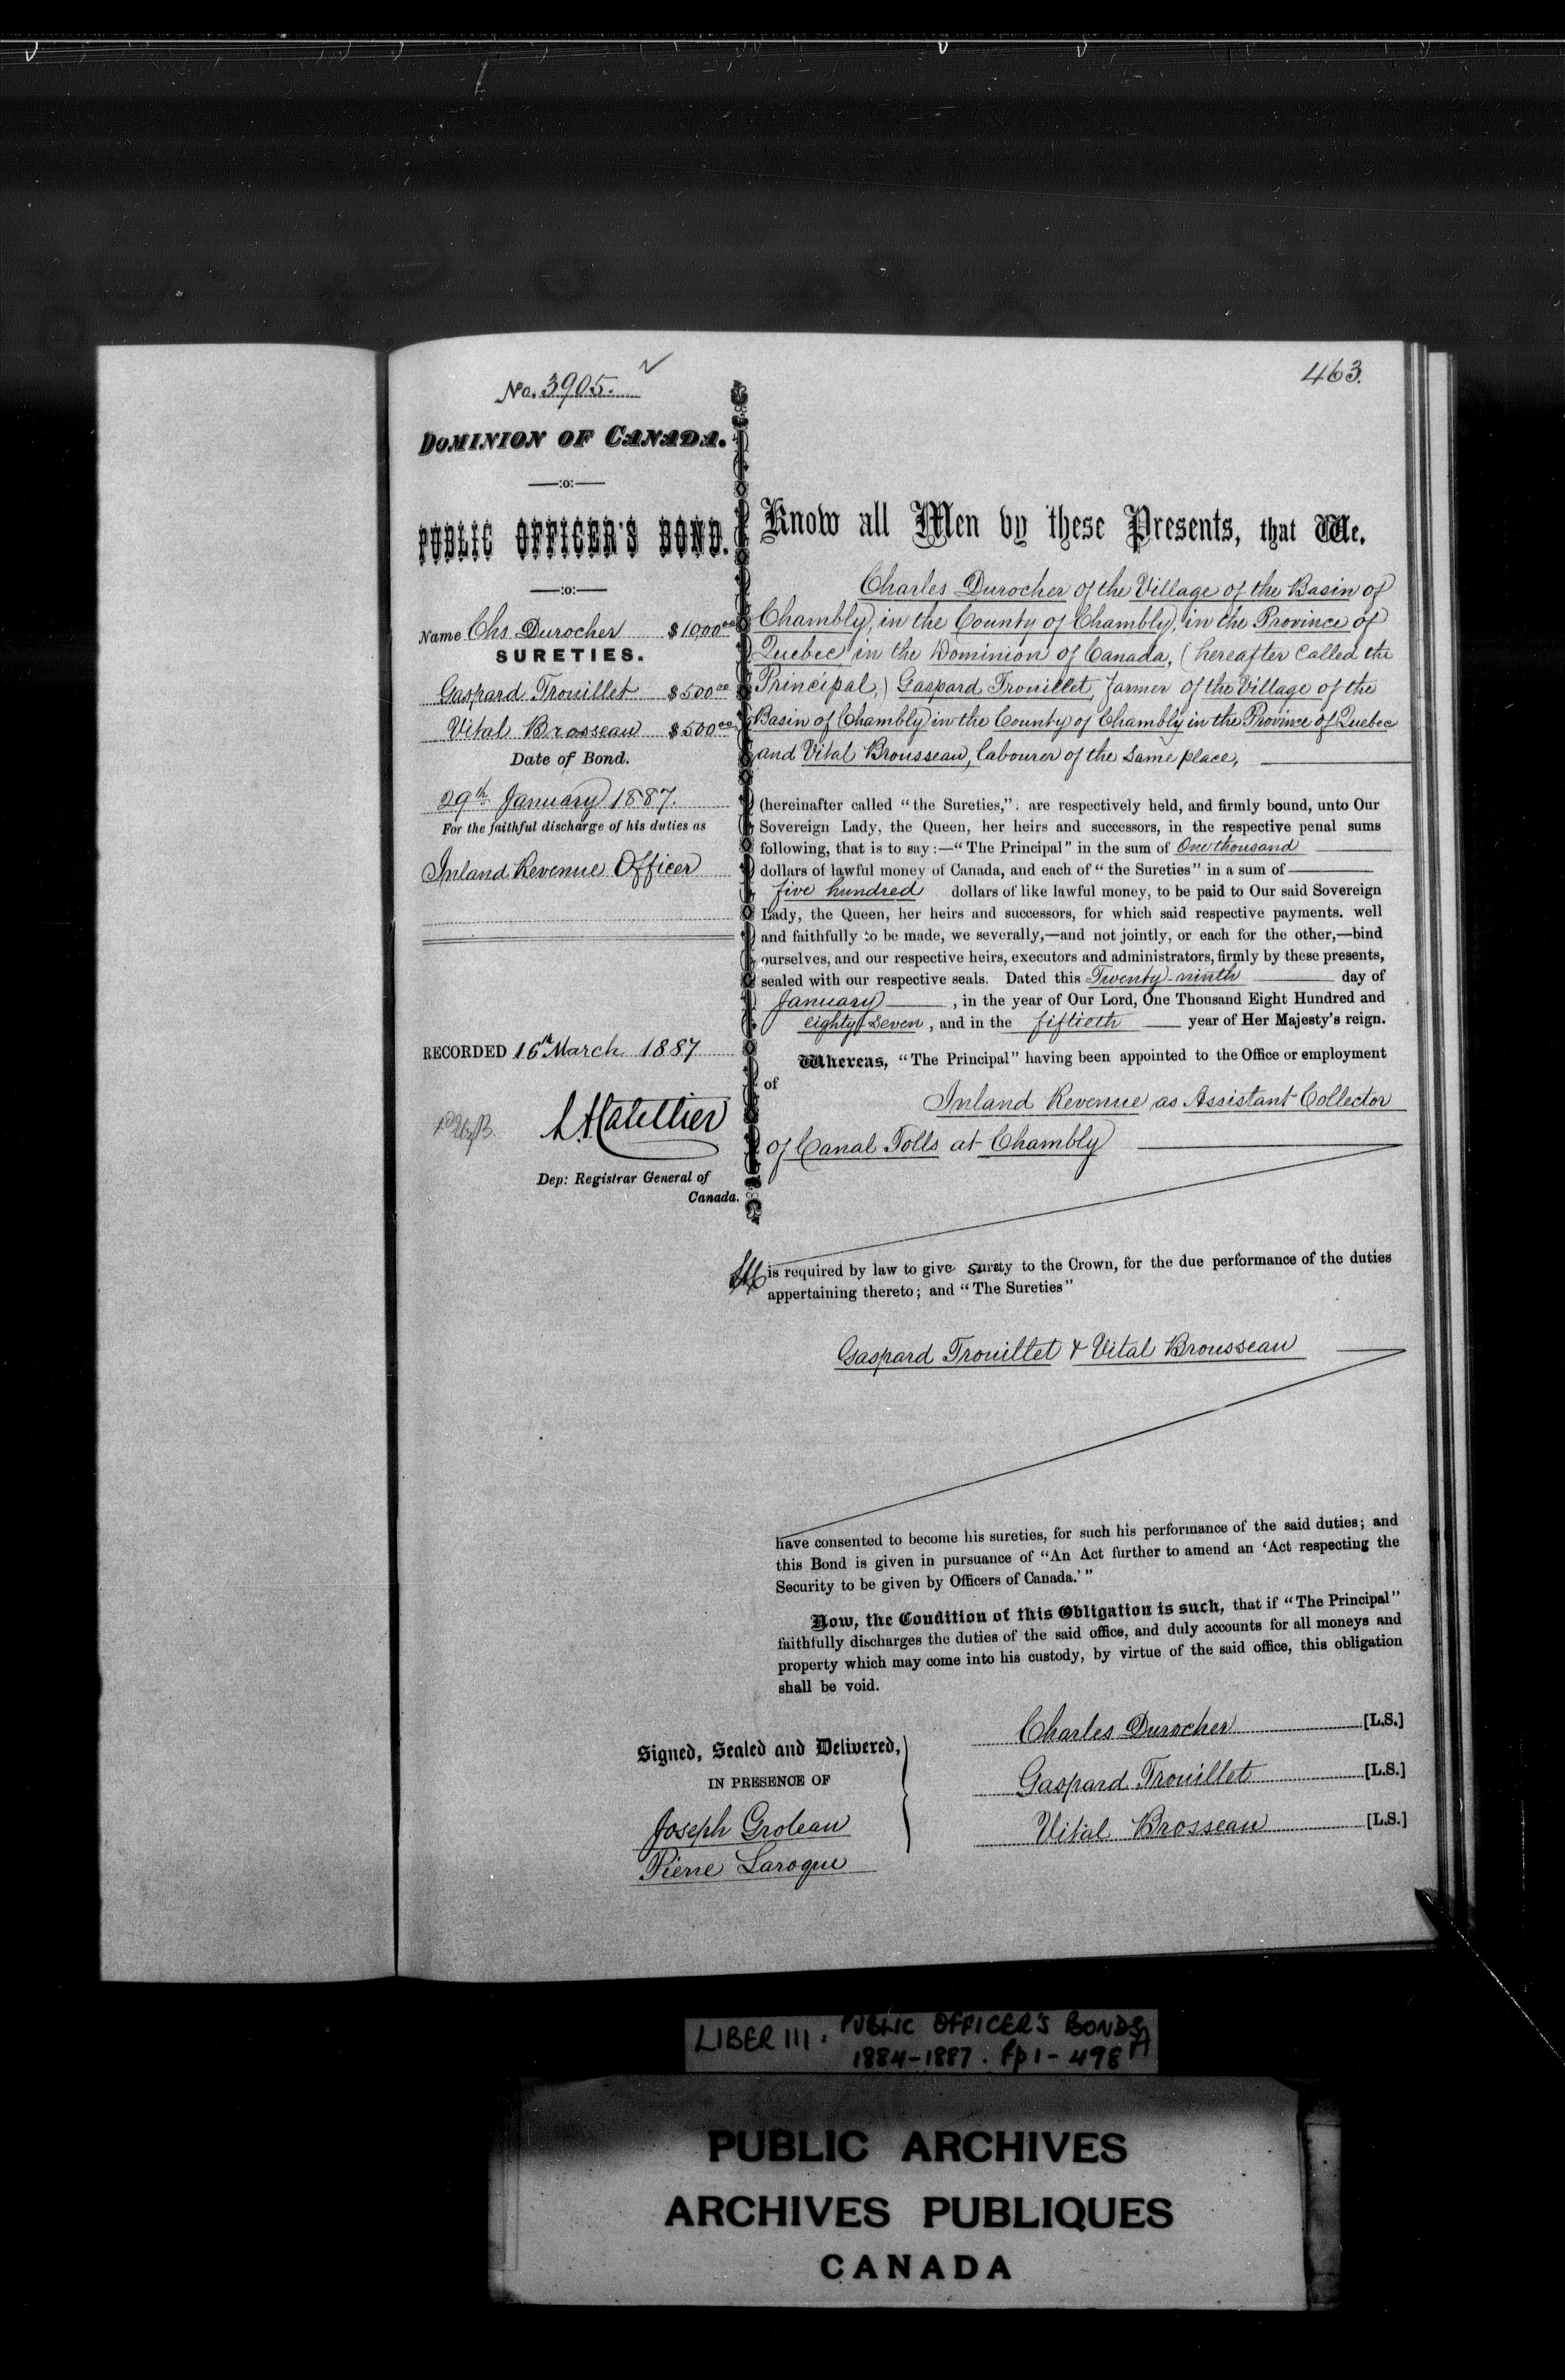 No. 3905.
463.
DOMINION OF CANADA.
—:o:—
PUBLIC OFFICER'S BOND.
—:o:—
Name Chs. Durocher $1000 00
SURETIES.
Gaspard Trouillet $500 00
Vital Brosseau $500 00
Date of Bond.
29th January 1887.
For the faithful discharge of his duties as
Inland Revenue Officer
RECORDED 16th March 1887
Dep: Registrar General of
Canada.
Know all Men by these Presents, that We,
Charles Durocher of the Village of the Basin of
Chambly, in the County of Chambly, in the Province of
Quebec in the Dominion of Canada, (hereafter called the
Principal,) Gaspard Trouillet, farmer of the Village of the
Basin of Chambly in the County of Chambly in the Province of Quebec
and Vital Brousseau, labourer of the same place,
(hereinafter called "the Sureties,". are respectively held, and firmly bound, unto Our
Sovereign Lady, the Queen, her heirs and successors, in the respective penal sums
following, that is to say:—"The Principal" in the sum of One thousand
dollars of lawful money of Canada, and each of "the Sureties" in a sum of
five hundred dollars of like lawful money, to be paid to Our said Sovereign
Lady, the Queen, her heirs and successors, for which said respective payments. well
and faithfully to be made, we severally,—and not jointly, or each for the other,—bind
ourselves, and our respective heirs, executors and administrators, firmly by these presents,
sealed with our respective seals. Dated this Twenty-ninth day of
January, in the year of Our Lord, One Thousand Eight Hundred and
eighty seven, and in the fiftieth year of Her Majesty's reign.
Whereas, "The Principal" having been appointed to the Office or employment
of
Inland Revenue as Assistant Collector
of Canal Tolls at Chambly
is required by law to give surety to the Crown, for the due performance of the duties
appertaining thereto; and "The Sureties"
Gaspard Trouillet & Vital Brousseau
have consented to become his sureties, for such his performance of the said duties; and
this Bond is given in pursuance of "An Act further to amend an 'Act respecting the
Security to be given by Officers of Canada.'"
Now, the Condition of this Obligation is such, that if "The Principal"
faithfully discharges the duties of the said office, and duly accounts for all moneys and
property which may come into his custody, by virtue of the said office, this obligation
shall be void.
Signed, Sealed and Delivered,
IN PRESENCE OF
Joseph Groleau
Pierre Laroque
Charles Durocher [L.S.]
Gaspard Trouillet [L.S.]
Vital Brosseau [L.S.]
LIBER III. PUBLIC OFFICER'S BONDS
1884-1887. fp 1-498
PUBLIC ARCHIVES
ARCHIVES PUBLIQUES
CANADA